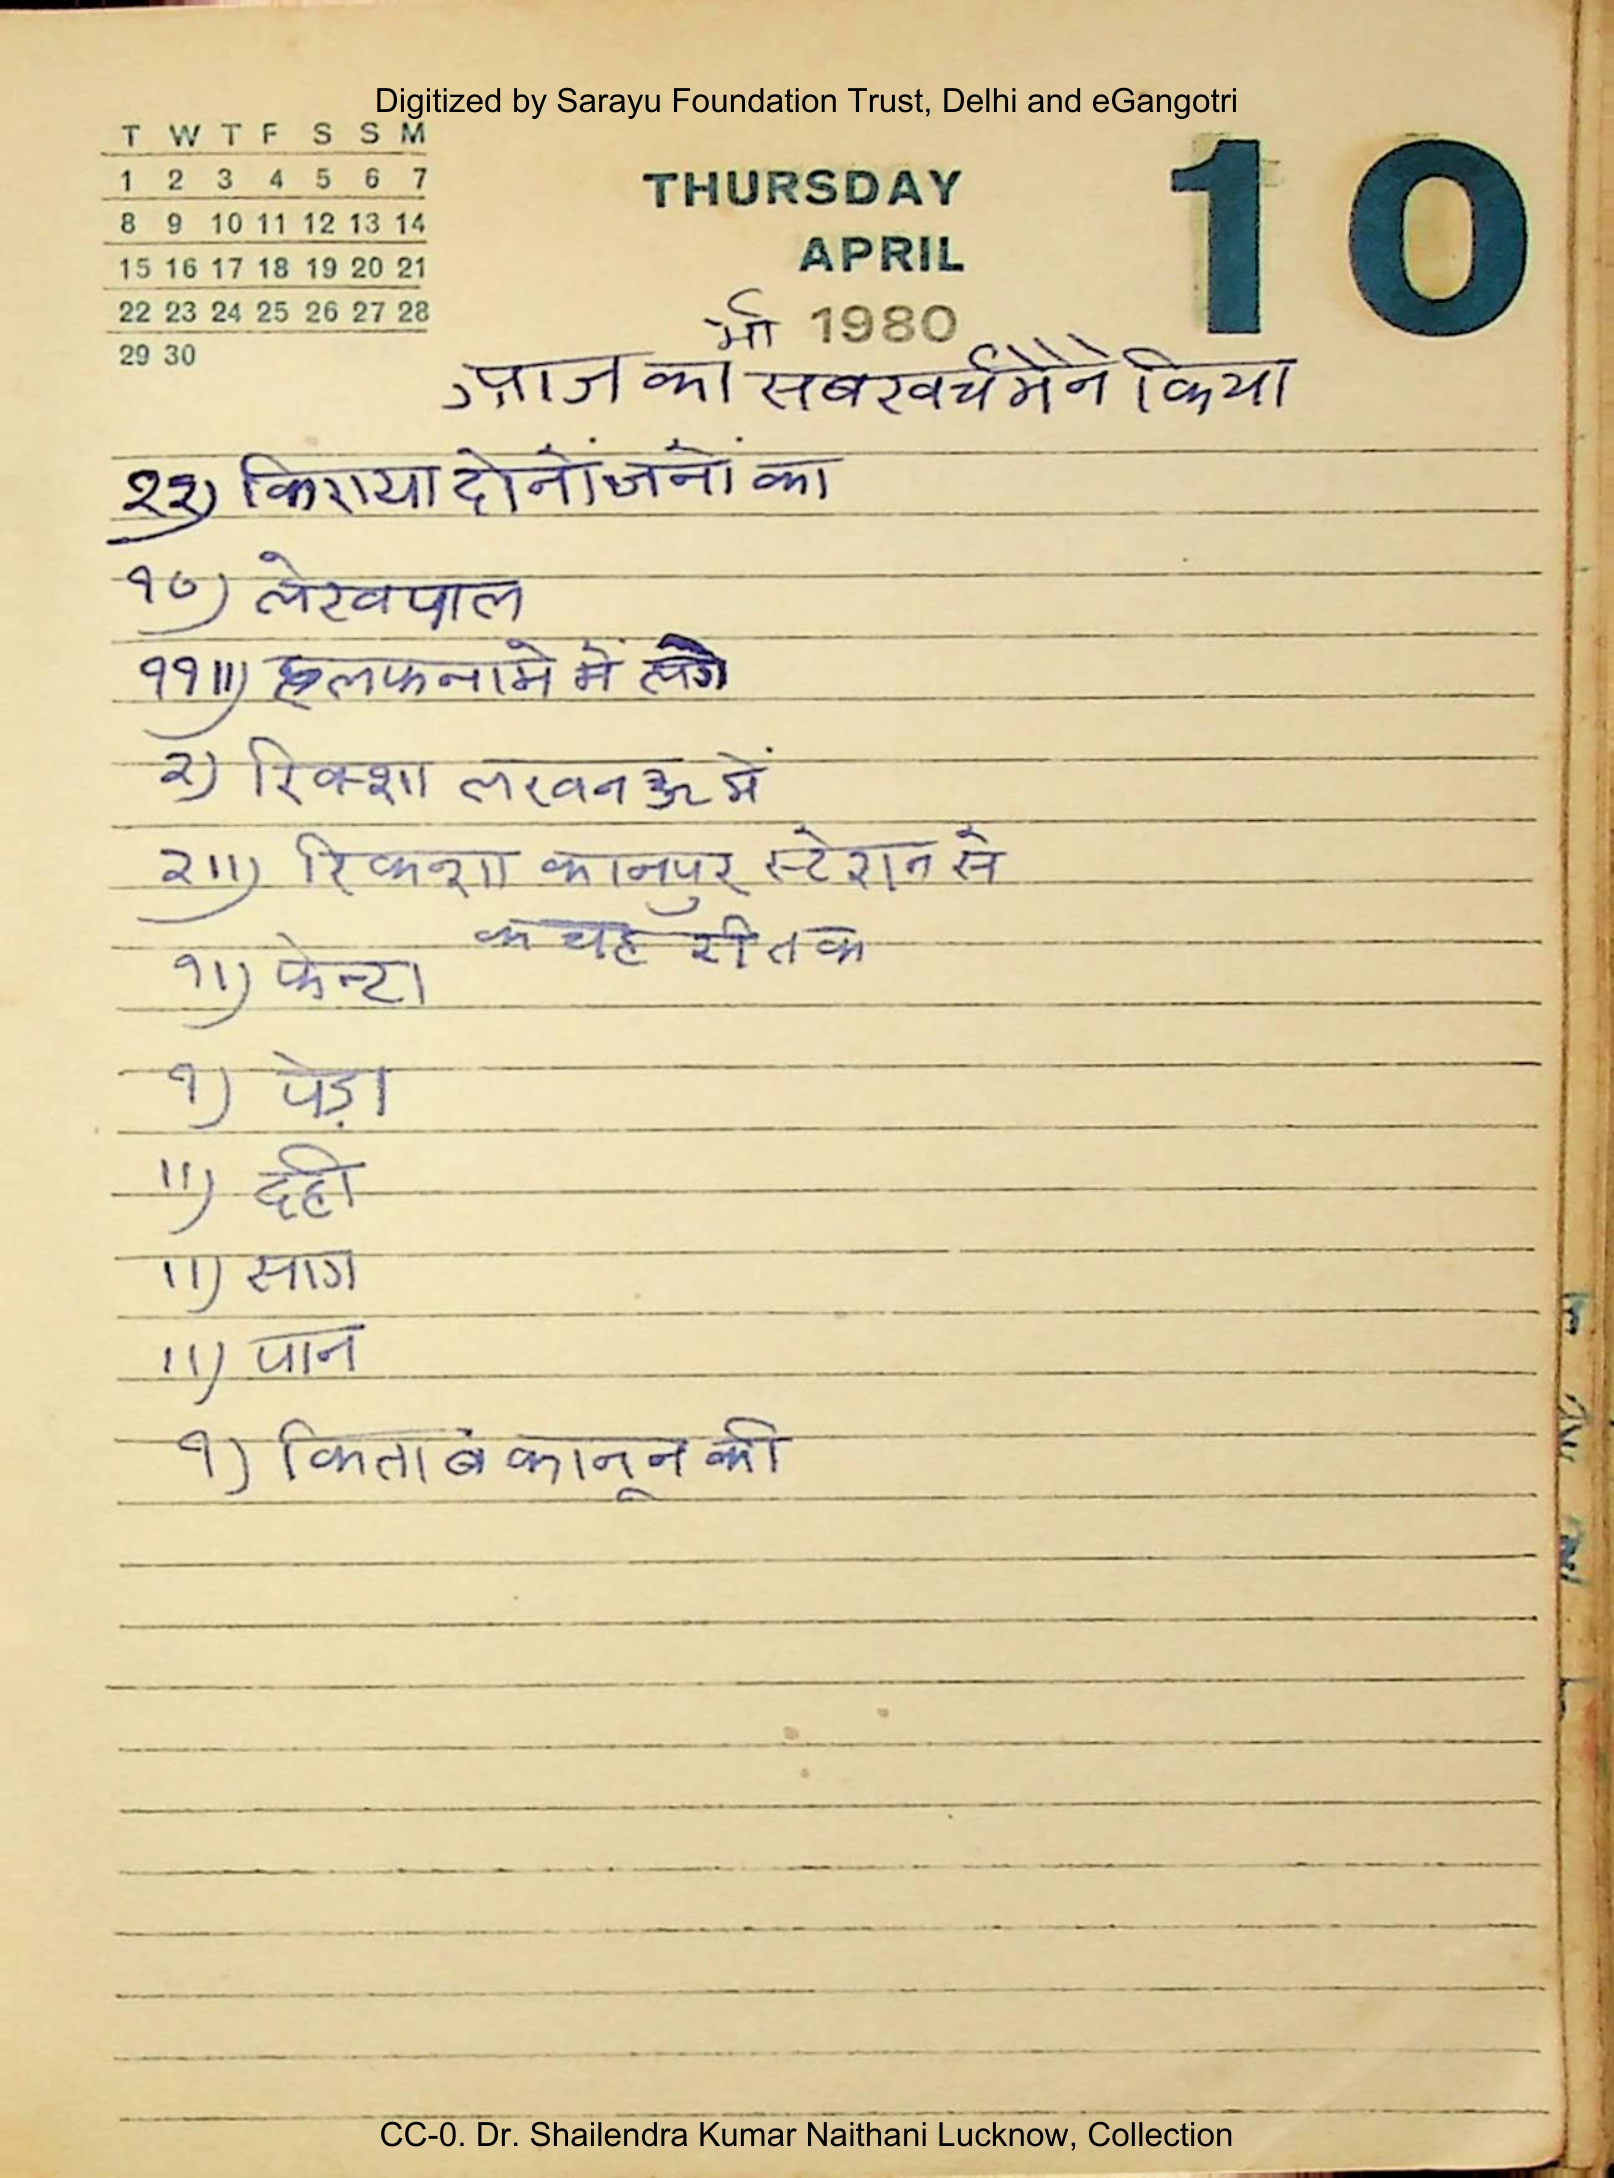 Digitized by Sarayu Foundation Trust, Delhi and eGangotri
T W T F S S M
1 2 3 4 5 6 7
8 9 10 11 12 13 14
15 16 17 18 19 20 21
22 23 24 25 26 27 28
29 30
THURSDAY
APRIL
1980
10
भी
आज का सब खर्च मैंने किया
२२) किराया दोनों जनों का
१७) लेखपाल
११॥) हलफनामे में लगे
२) रिक्शा लखनऊ में
२॥) रिकशा कानपुर स्टेशन से
कचहरी तक
१।) फेन्टा
१) पेड़ा
॥) दही
॥) साग
॥) पान
१) किताब कानून की
CC-0. Dr. Shailendra Kumar Naithani Lucknow, Collection